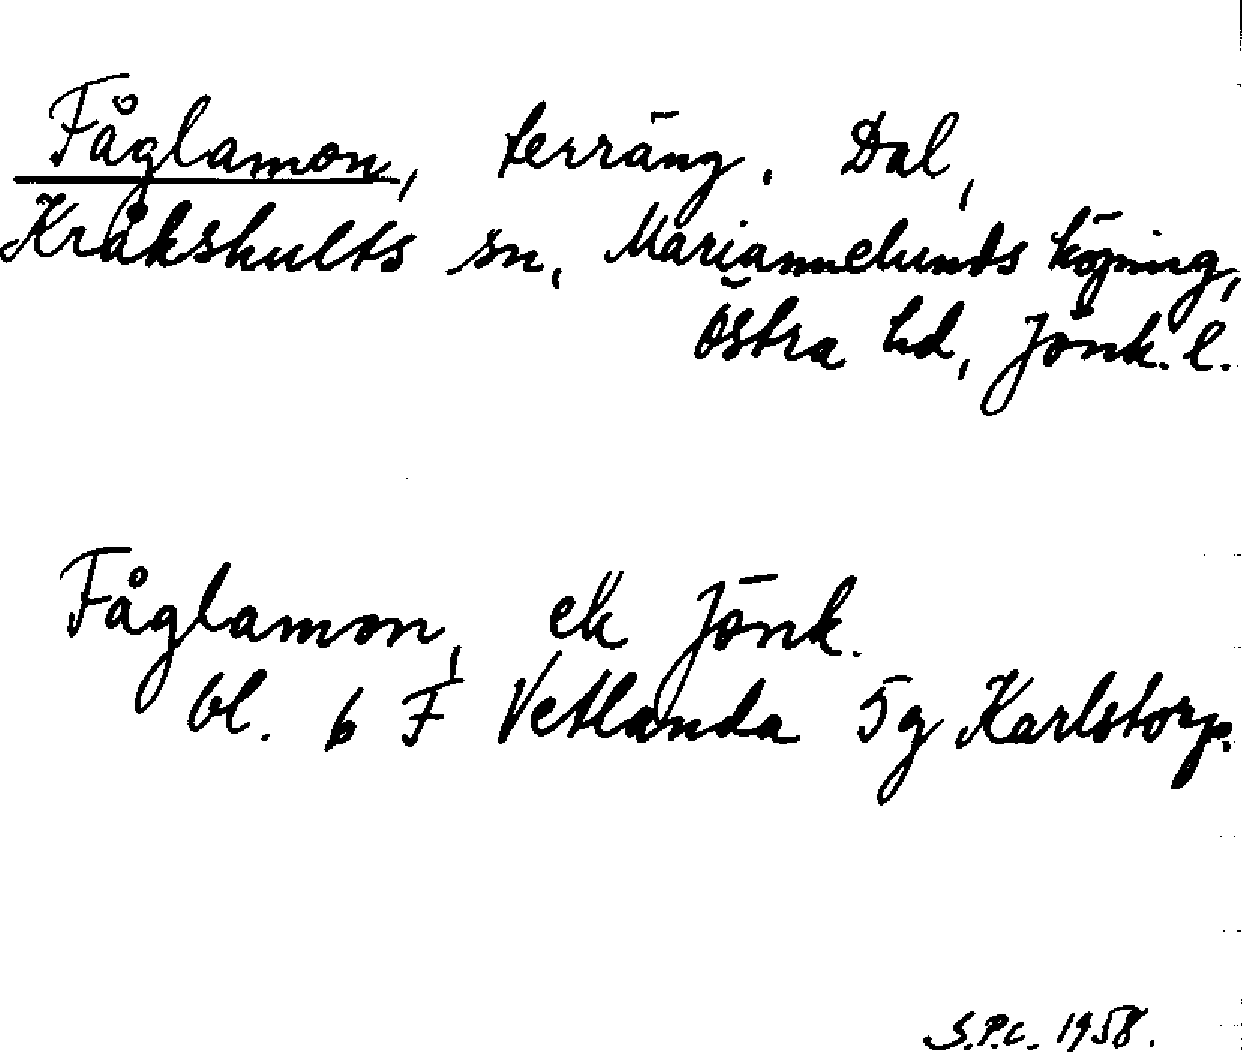 Fåglamon, terräng. Dal,
Kråkshults sn, Mariannelunds köping,
Östra hd, Jönk. l.
Fåglamon, ek Jönk.
bl. 6 F Vetlanda 5g Karlstorp.
S.P.C. 1958.